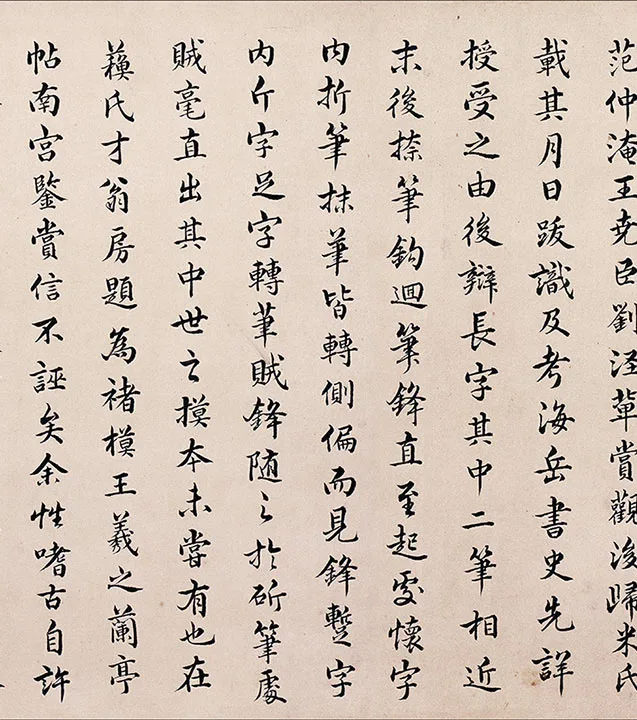 范仲淹王尭臣劉涇軰賞觀後歸米氏
載其月日跋識及考海岳書史先詳
授受之由後辯長字其中二筆相近
末後捺筆鈎迴筆鋒直至起處懷字
内折筆抹筆皆轉側偏而見鋒蹔字
内斤字足字轉筆賊鋒随之於斫筆處
賊毫直出其中世之摸本未嘗有也在
蘇氏才翁房題為禇模王羲之蘭亭
帖南宫鑒賞信不誣矣余性嗜古自許